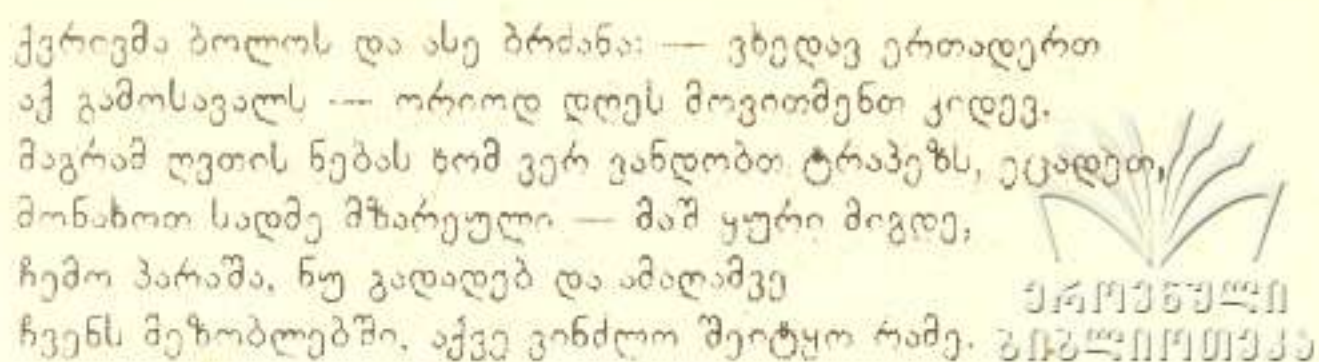 ქვრივმა ბოლოს და ასე ბრძანა: — ვხედავ ერთადერთ
აქ გამოსავალს — ორიოდ დღეს მოვითმენთ კიდევ.
მაგრამ ღვთის ნებას ხომ ვერ ვანდობთ ტრაპეზს, ეცადეთ,
მონახოთ სადმე მზარეული — მაშ ყური მიგდე,
ჩემო პარაშა, ნუ გადადებ და ამაღამვე
ჩვენს მეზობლებში, აქვე ვინძლო შეიტყო რამე.
ეროვნული
ბიბლიოთეკა